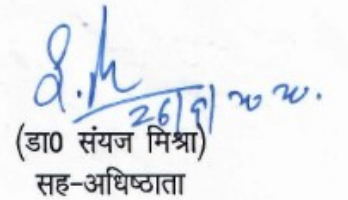 26/9/2020.
(डा0 संयज मिश्रा)
सह-अधिष्ठाता